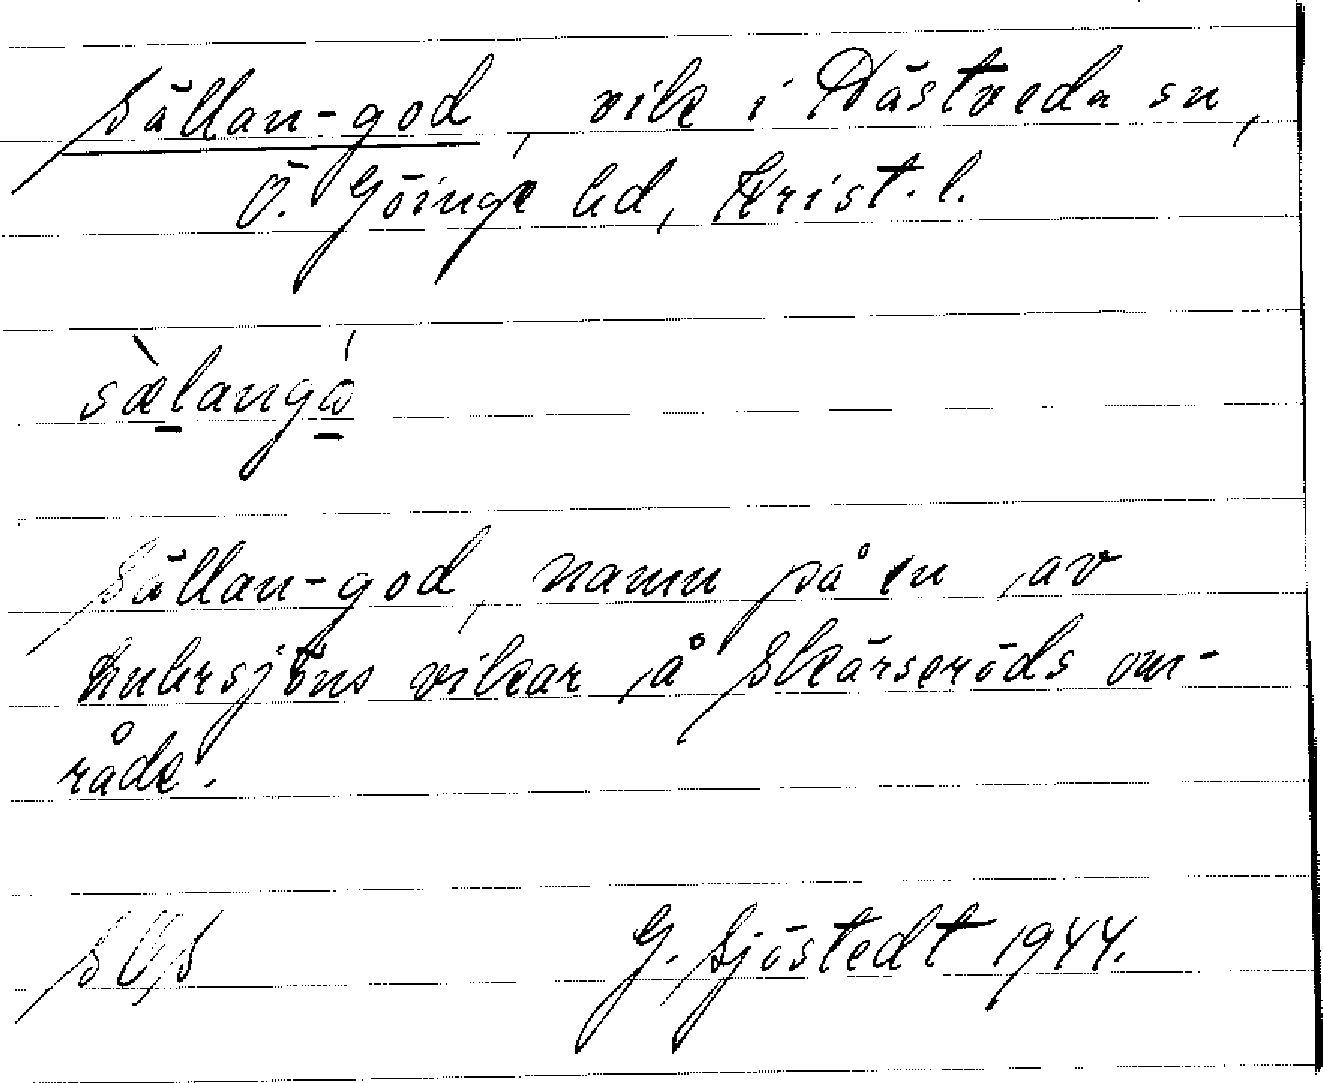 Sällan-god, vik i Hästveda sn,
Ö. Göinge hd, Krist. l.
sælangó
Sällan-god, namn på en av
Luhrsjöns vikar å Skärseröds om-
råde.
G. Sjöstedt 1944.